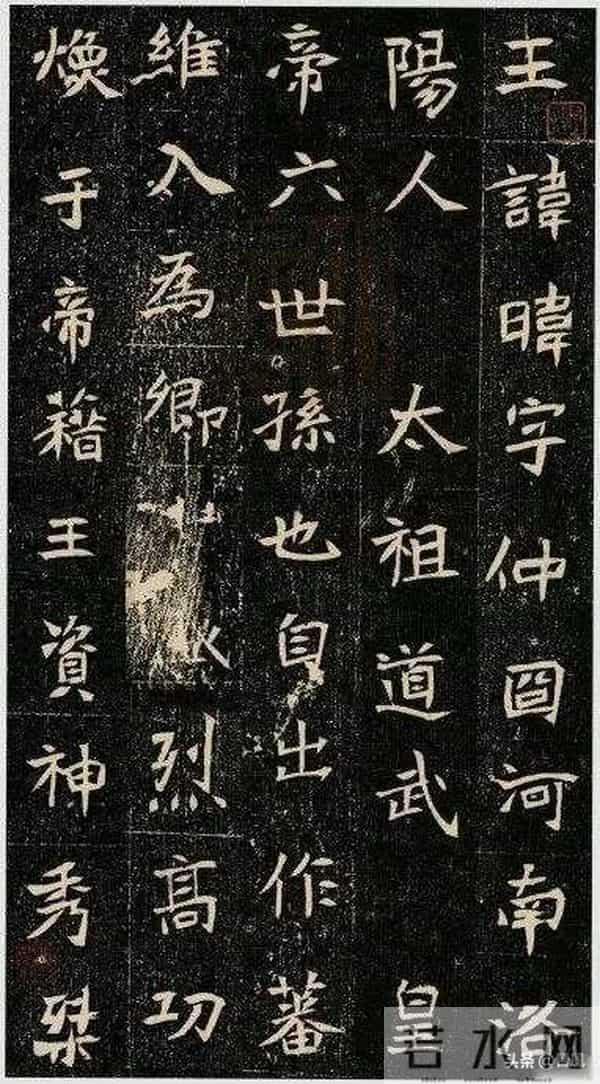 王諱暐字仲冏河南洛
陽人 太祖道武 皇
帝六世孫也自出作蕃
維入為卿烈髙功
煥于帝藉王資神秀桀
若水网
头条